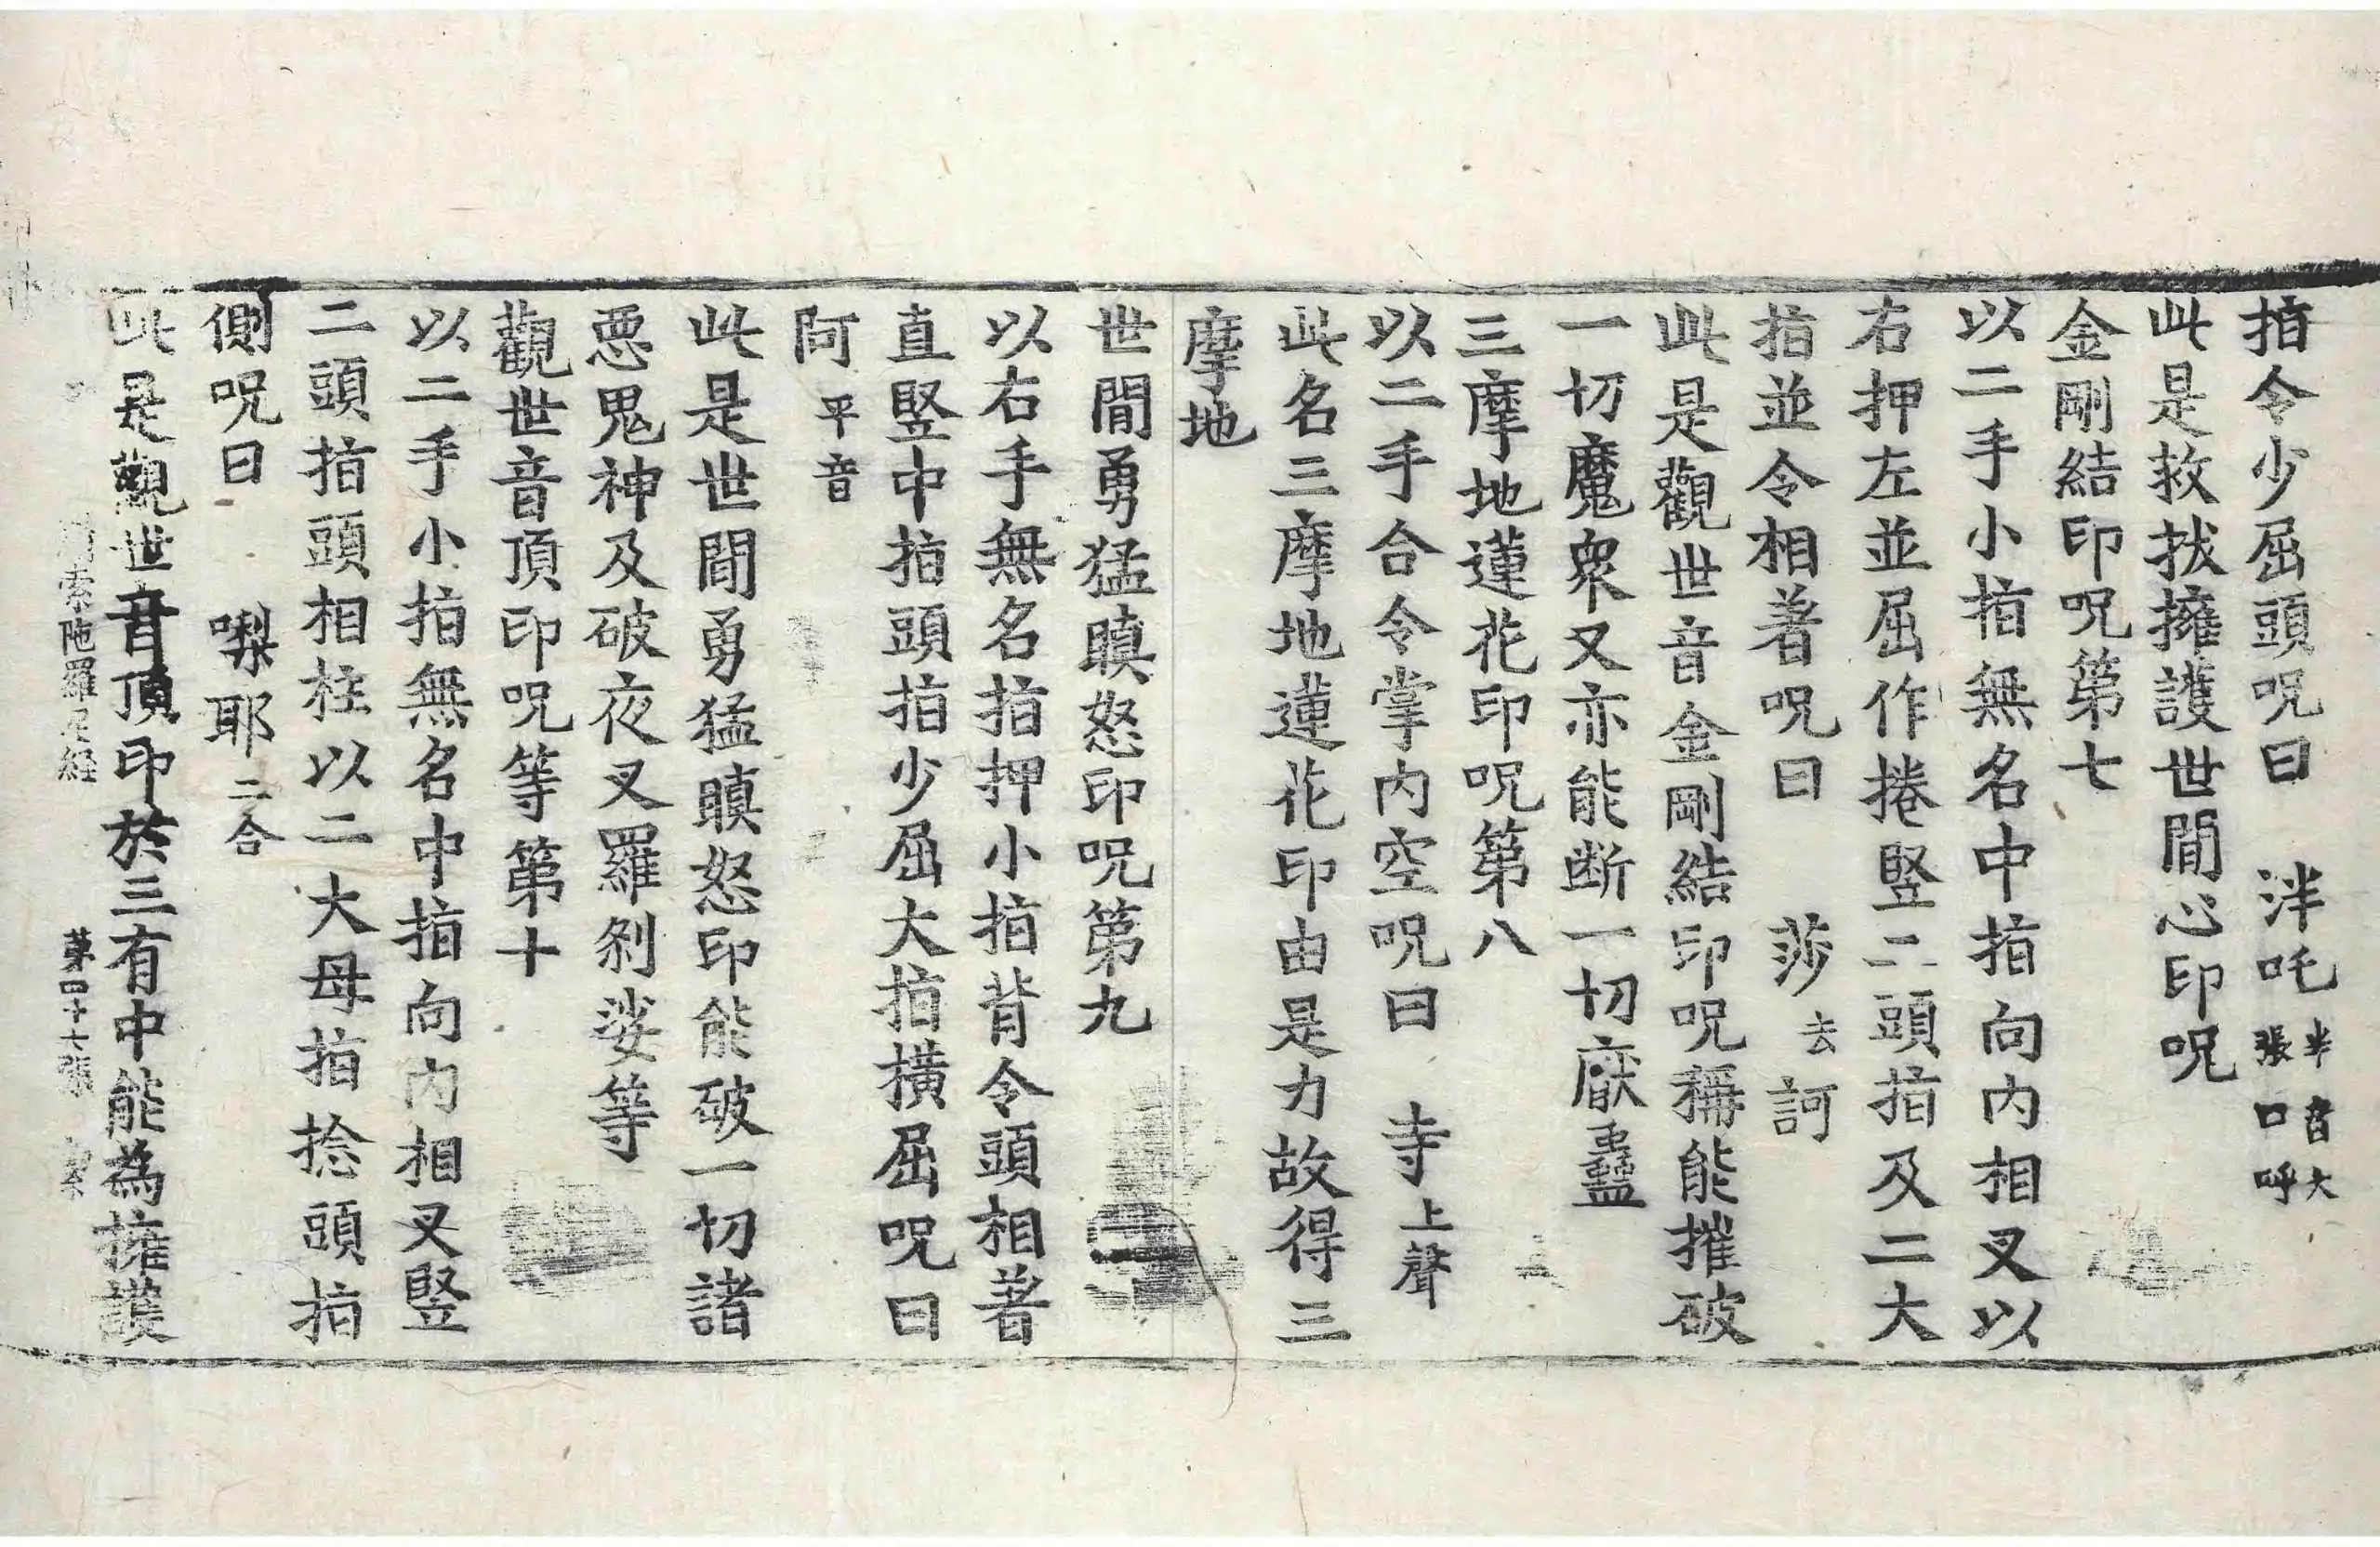 指令少屈頭呪曰　泮吒半音大張口呼
此是救拔擁護世間心印呪
金剛結印呪第七
以二手小指無名中指向內相叉以
右押左並屈作捲竪二頭指及二大
指並令相著呪曰　莎去訶
此是觀世音金剛結印呪稱能摧破
一切魔衆又亦能断一切厭蠱
三摩地蓮花印呪第八
以二手合令掌內空呪曰　寺上聲
此名三摩地蓮花印由是力故得三
摩地
世間勇猛瞋怒印呪第九
以右手無名指押小指背令頭相著
直竪中指頭指少屈大指橫屈呪曰
阿平音
此是世間勇猛瞋怒印能破一切諸
惡鬼神及破夜叉羅剎娑等
觀世音頂印呪等第十
以二手小指無名中指向內相叉竪
二頭指頭相柱以二大母指捻頭指
側呪曰　㗚耶二合
此是觀世音頂印於三有中能為擁護
索陁羅尼經　第四十七張